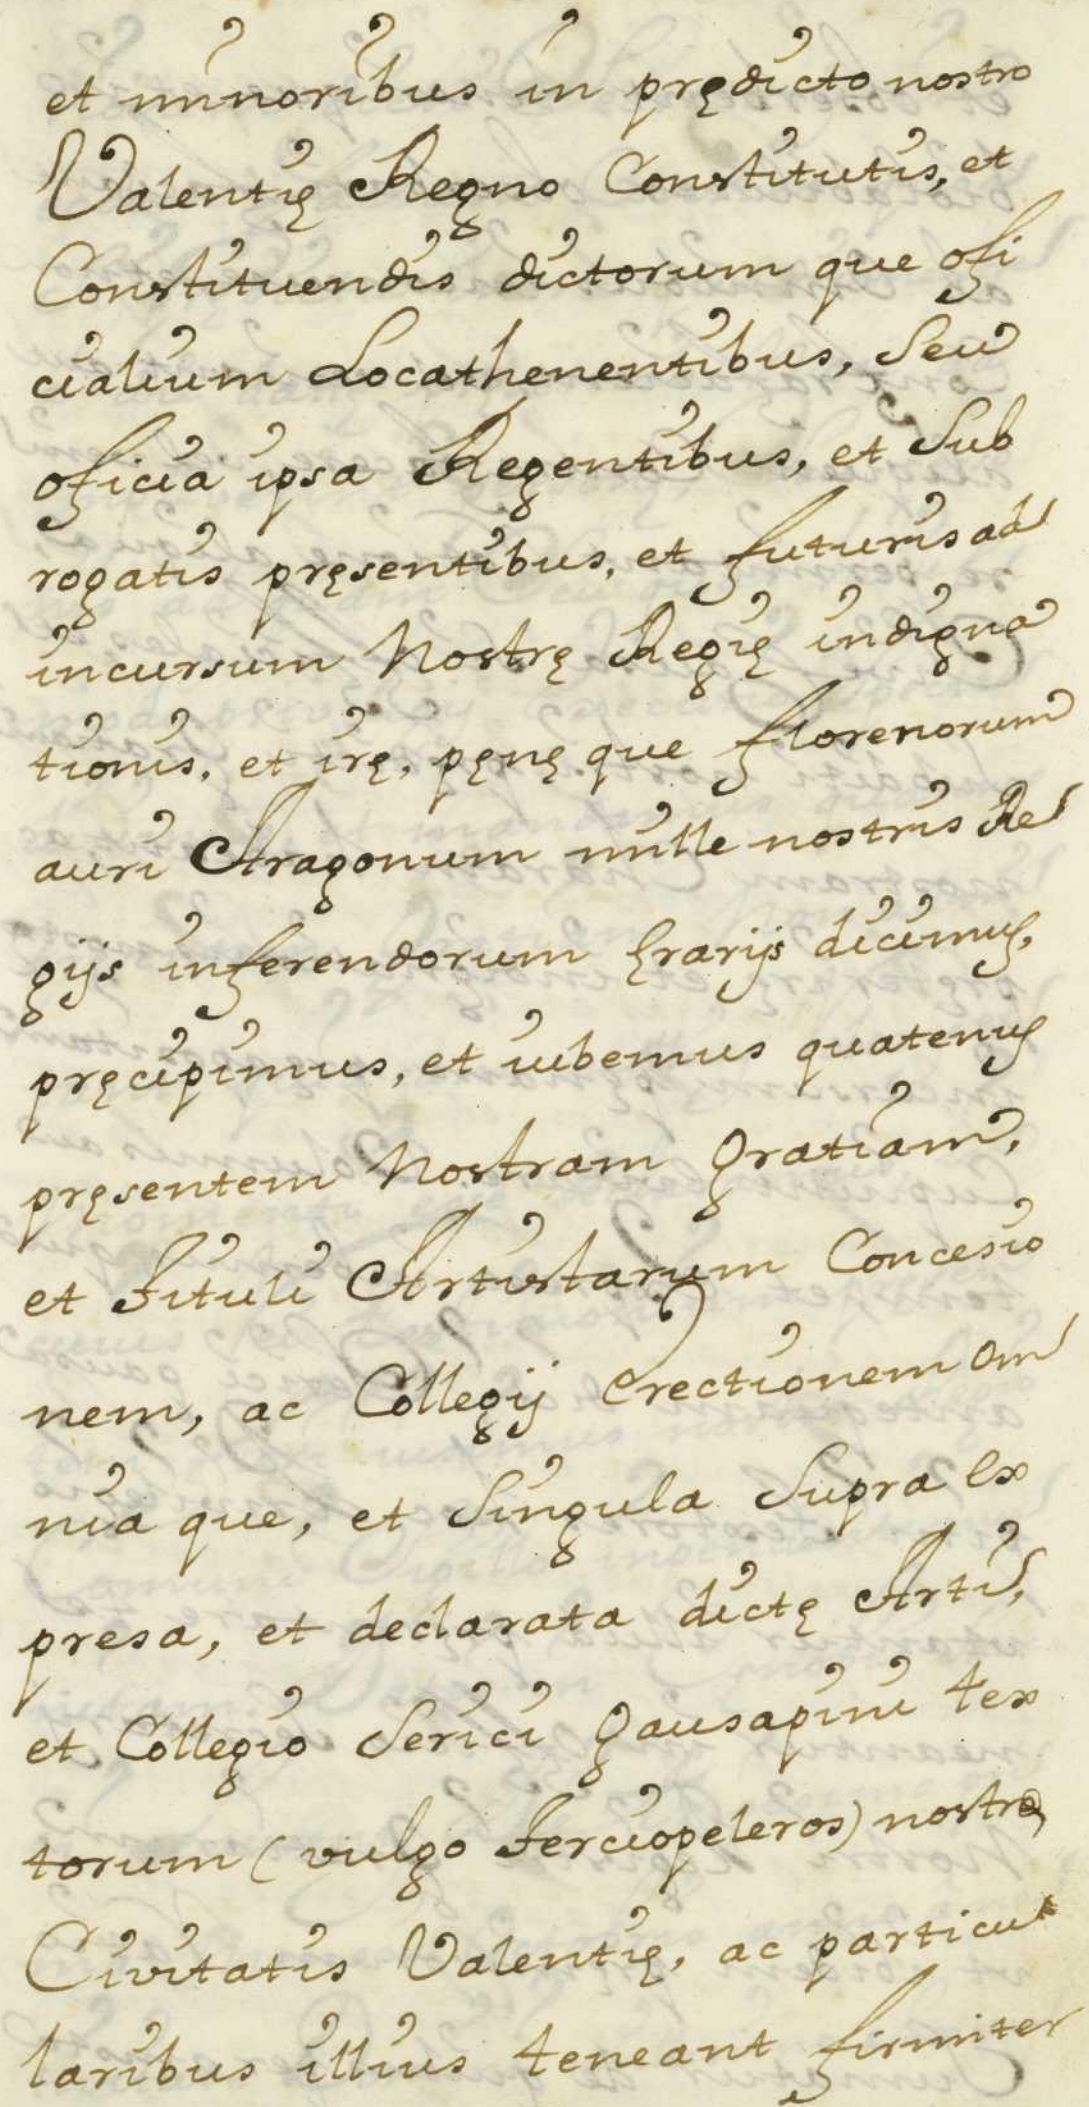 et minoribus in prędicto nostro
Valentię Regno Constitutis, et
Constituendis dictorum que ofi
cialium Locathenentibus, Seu
oficia ipsa Regentibus, et Sub
rogatis pręsentibus, et futuris ad
incursum Nostrę Regię indigna
tionis, et irę, pęnę que florenorum
auri Aragonum mille nostris Re
gijs inferendorum Ęrarijs dicimus,
pręcipimus, et iubemus quatenus
pręsentem Nostram gratiam,
et Tituli Artistarum Concesio
nem, ac Collegij Erectionem om
nia que, et Singula Supra ex
presa, et declarata dictę Arti,
et Collegio Serici gausapini tex
torum (vulgo Terciopeleros) nostrę
Civitatis Valentię, ac particu
laribus illius teneant firmiter